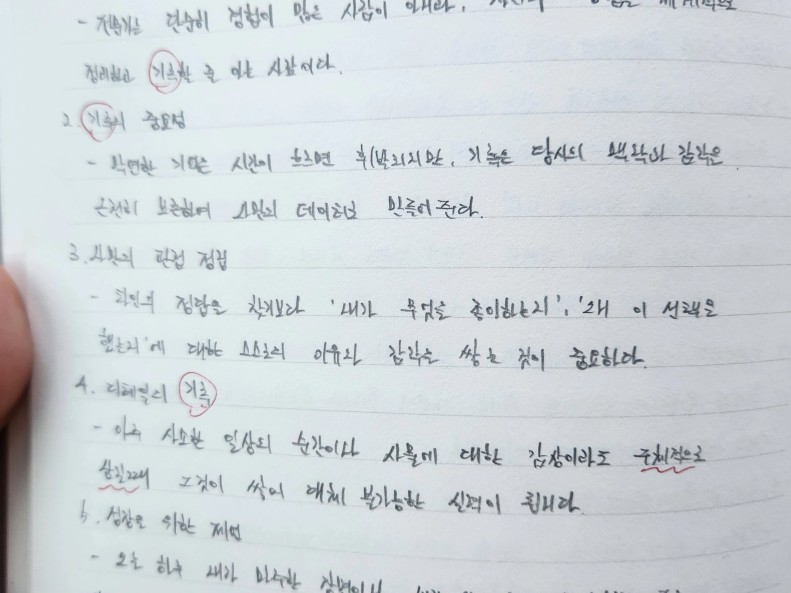 - 전문가는 단순히 경험이 많은 사람이 아니라,
정리하고 기록할 줄 아는 사람이다.
2. 기록의 중요성
- 막연한 기억은 시간이 흐르면 휘발되지만, 기록은 당시의 맥락과 감각은
온전히 보존하여 나만의 데이터로 만들어준다.
3. 나만의 관점 정립
- 타인의 정답을 찾기보다 '내가 무엇을 좋아하는지', '왜 이 선택을
했는지'에 대한 스스로의 이유와 감각을 쌓는 것이 중요하다.
4. 디테일의 기록
- 아주 사소한 일상의 순간이나 사물에 대한 감상이라도 주체적으로
남길때 그것이 쌓여 대체 불가능한 실력이 됩니다.
5. 성장을 위한 제언
- 오늘 하루 내가 마주한 장면이나